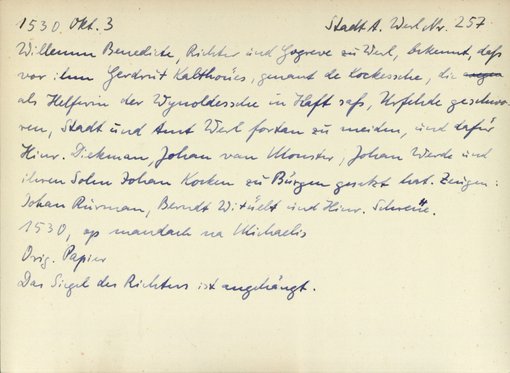 1530. Okt. 3 Stadt A. Werl Nr. 257
Willemm Benedicte, Richter und Gogreve zu Werl, bekennt, daß
vor ihm Gerdrút Kalthoúes, genant de Kockessche, die wegen
als Helferin der Wynoldessche in Haft saß, Urfehde geschwo-
ren, Stadt und Amt Werl fortan zu meiden, und dafür
Hinr. Diekman, Johan van Monster, Johan Werde und
ihren Sohn Johan Kocken zu Bürgen gesetzt hat. Zeugen:
Johan Rurman, Berndt und Hinr.
1530, op mandach na Michaelis
Orig. Papier
Das Siegel des Richters ist angehängt.